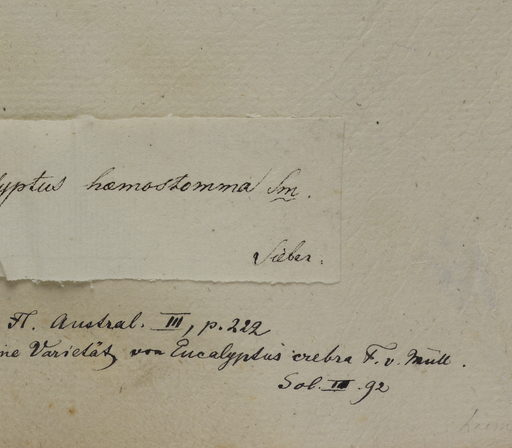 lyptus hæmostomma Sm.
Sieber.
Fl. Austral. III, p. 222
ne Varietät von Eucalyptus crebra F. v. Müll.
Sol. III. 92